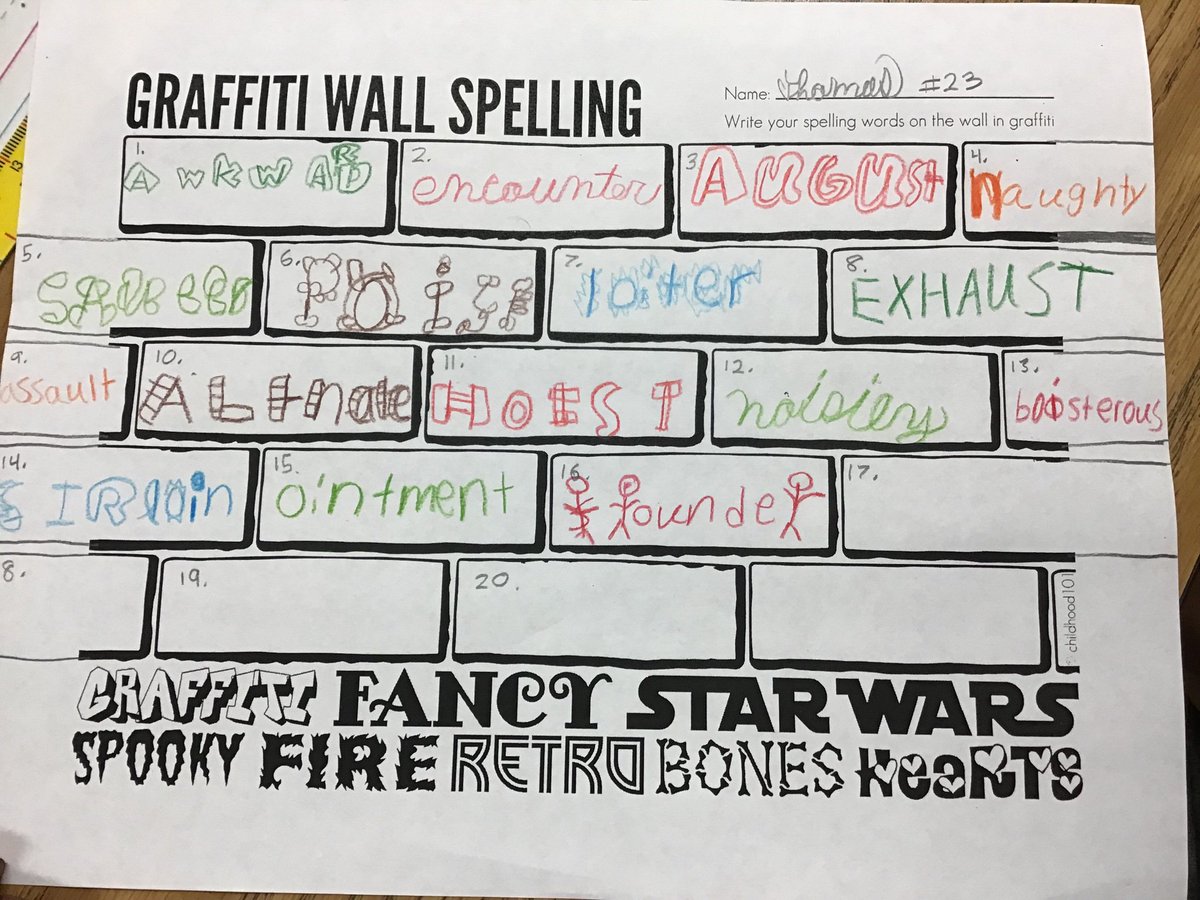 GRAFFITI WALL SPELLING
Name: thomas #23
Write your spelling words on the wall in graffiti
1. AwkwARD
2. encounter
3. AUGUSt
4. naughty
5.
6. POISE
7. loiter
8. EXHAUST
9. assault
10. ALtnate
11. HOEST
12. noisiery
13. boisterous
14. SIRloin
15. ointment
16. flounder
17.
8.
19.
20.
© childhood101
GRAFFITI FANCY STAR WARS
SPOOKY FIRE RETRO BONES HeaRTS